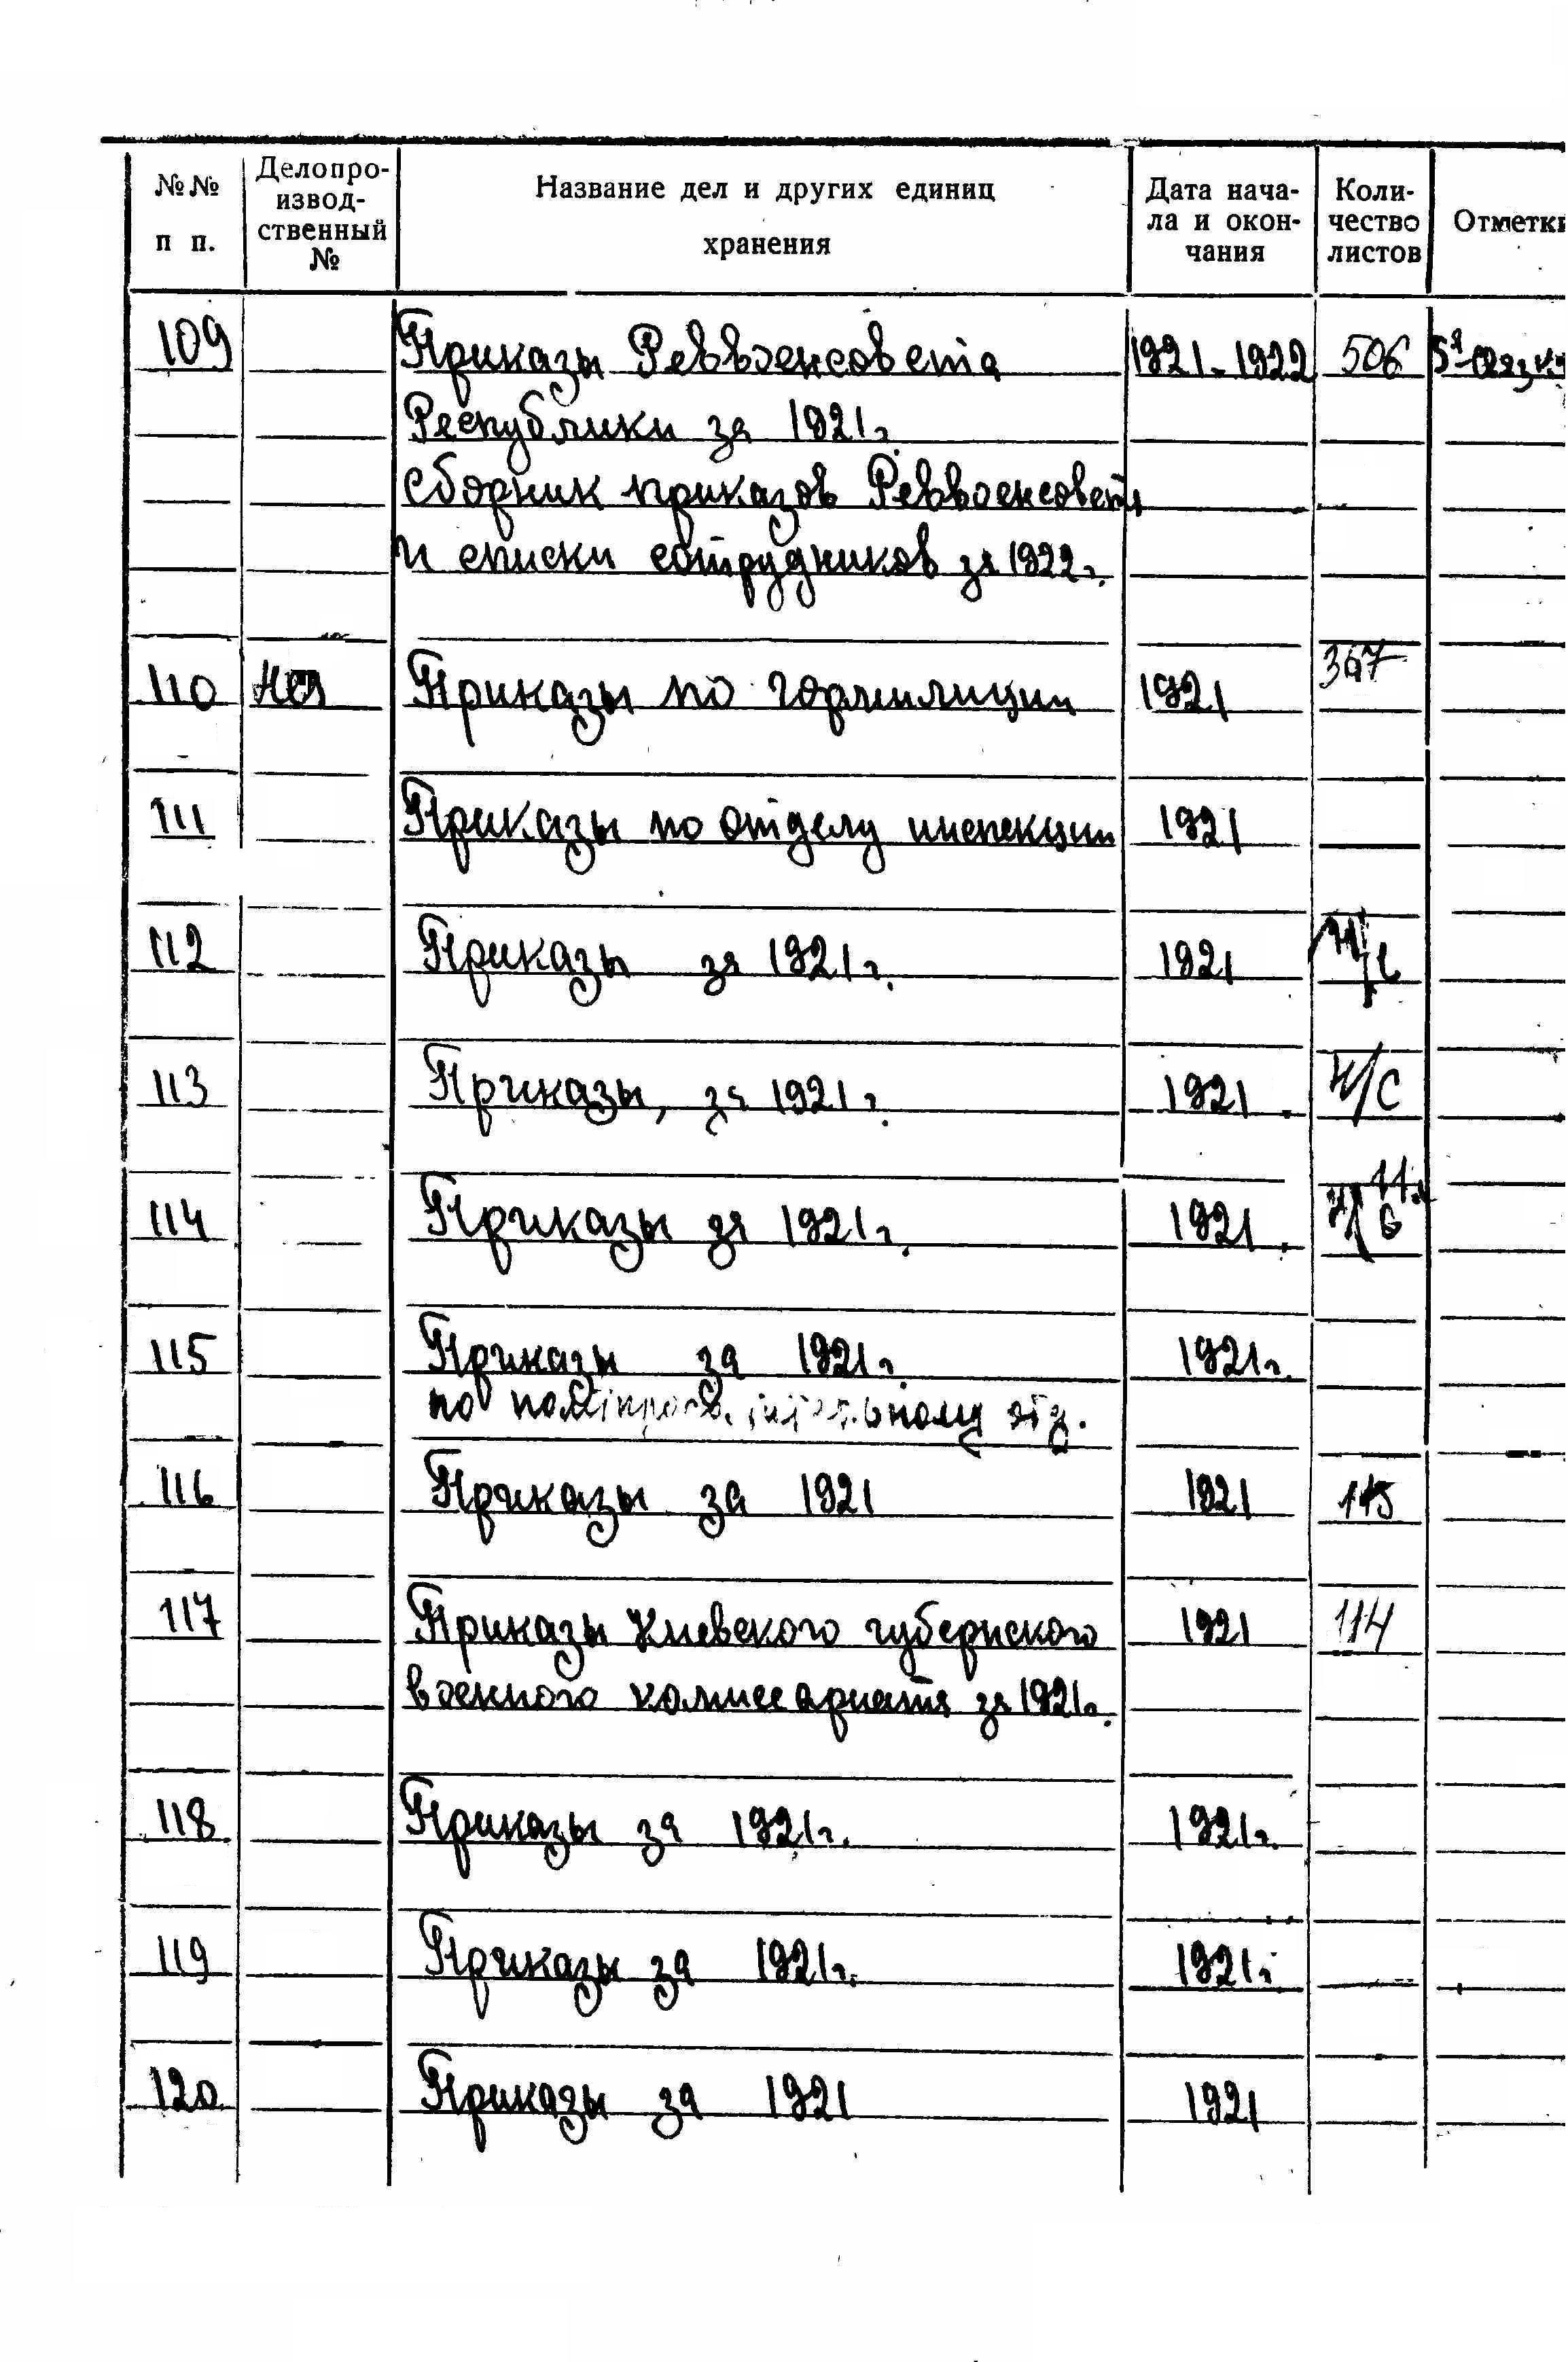 №№ п п. Делопроизводственный № Название дел и других единиц хранения Дата начала и окончания Количество листов Отметки
109 Приказы Реввоенсовета 1921-1922 506
Республики за 1921г.
Сборник приказов Реввоенсовета
и списки сотрудников за 1922г.
110 Приказы по гормилиции 1921 367
111 Приказы по отделу инспекции 1921
112 Приказы за 1921г. 1921
113 Приказы, за 1921г. 1921 Н/С
114 Приказы за 1921г. 1921
115 Приказы за 1921г. 1921г.
по отд.
116 Приказы за 1921 1921 115
117 Приказы Киевского губернского 1921 114
военного комиссариата за 1921г.
118 Приказы за 1921г. 1921г.
119 Приказы за 1921г. 1921г.
120 Приказы за 1921 1921